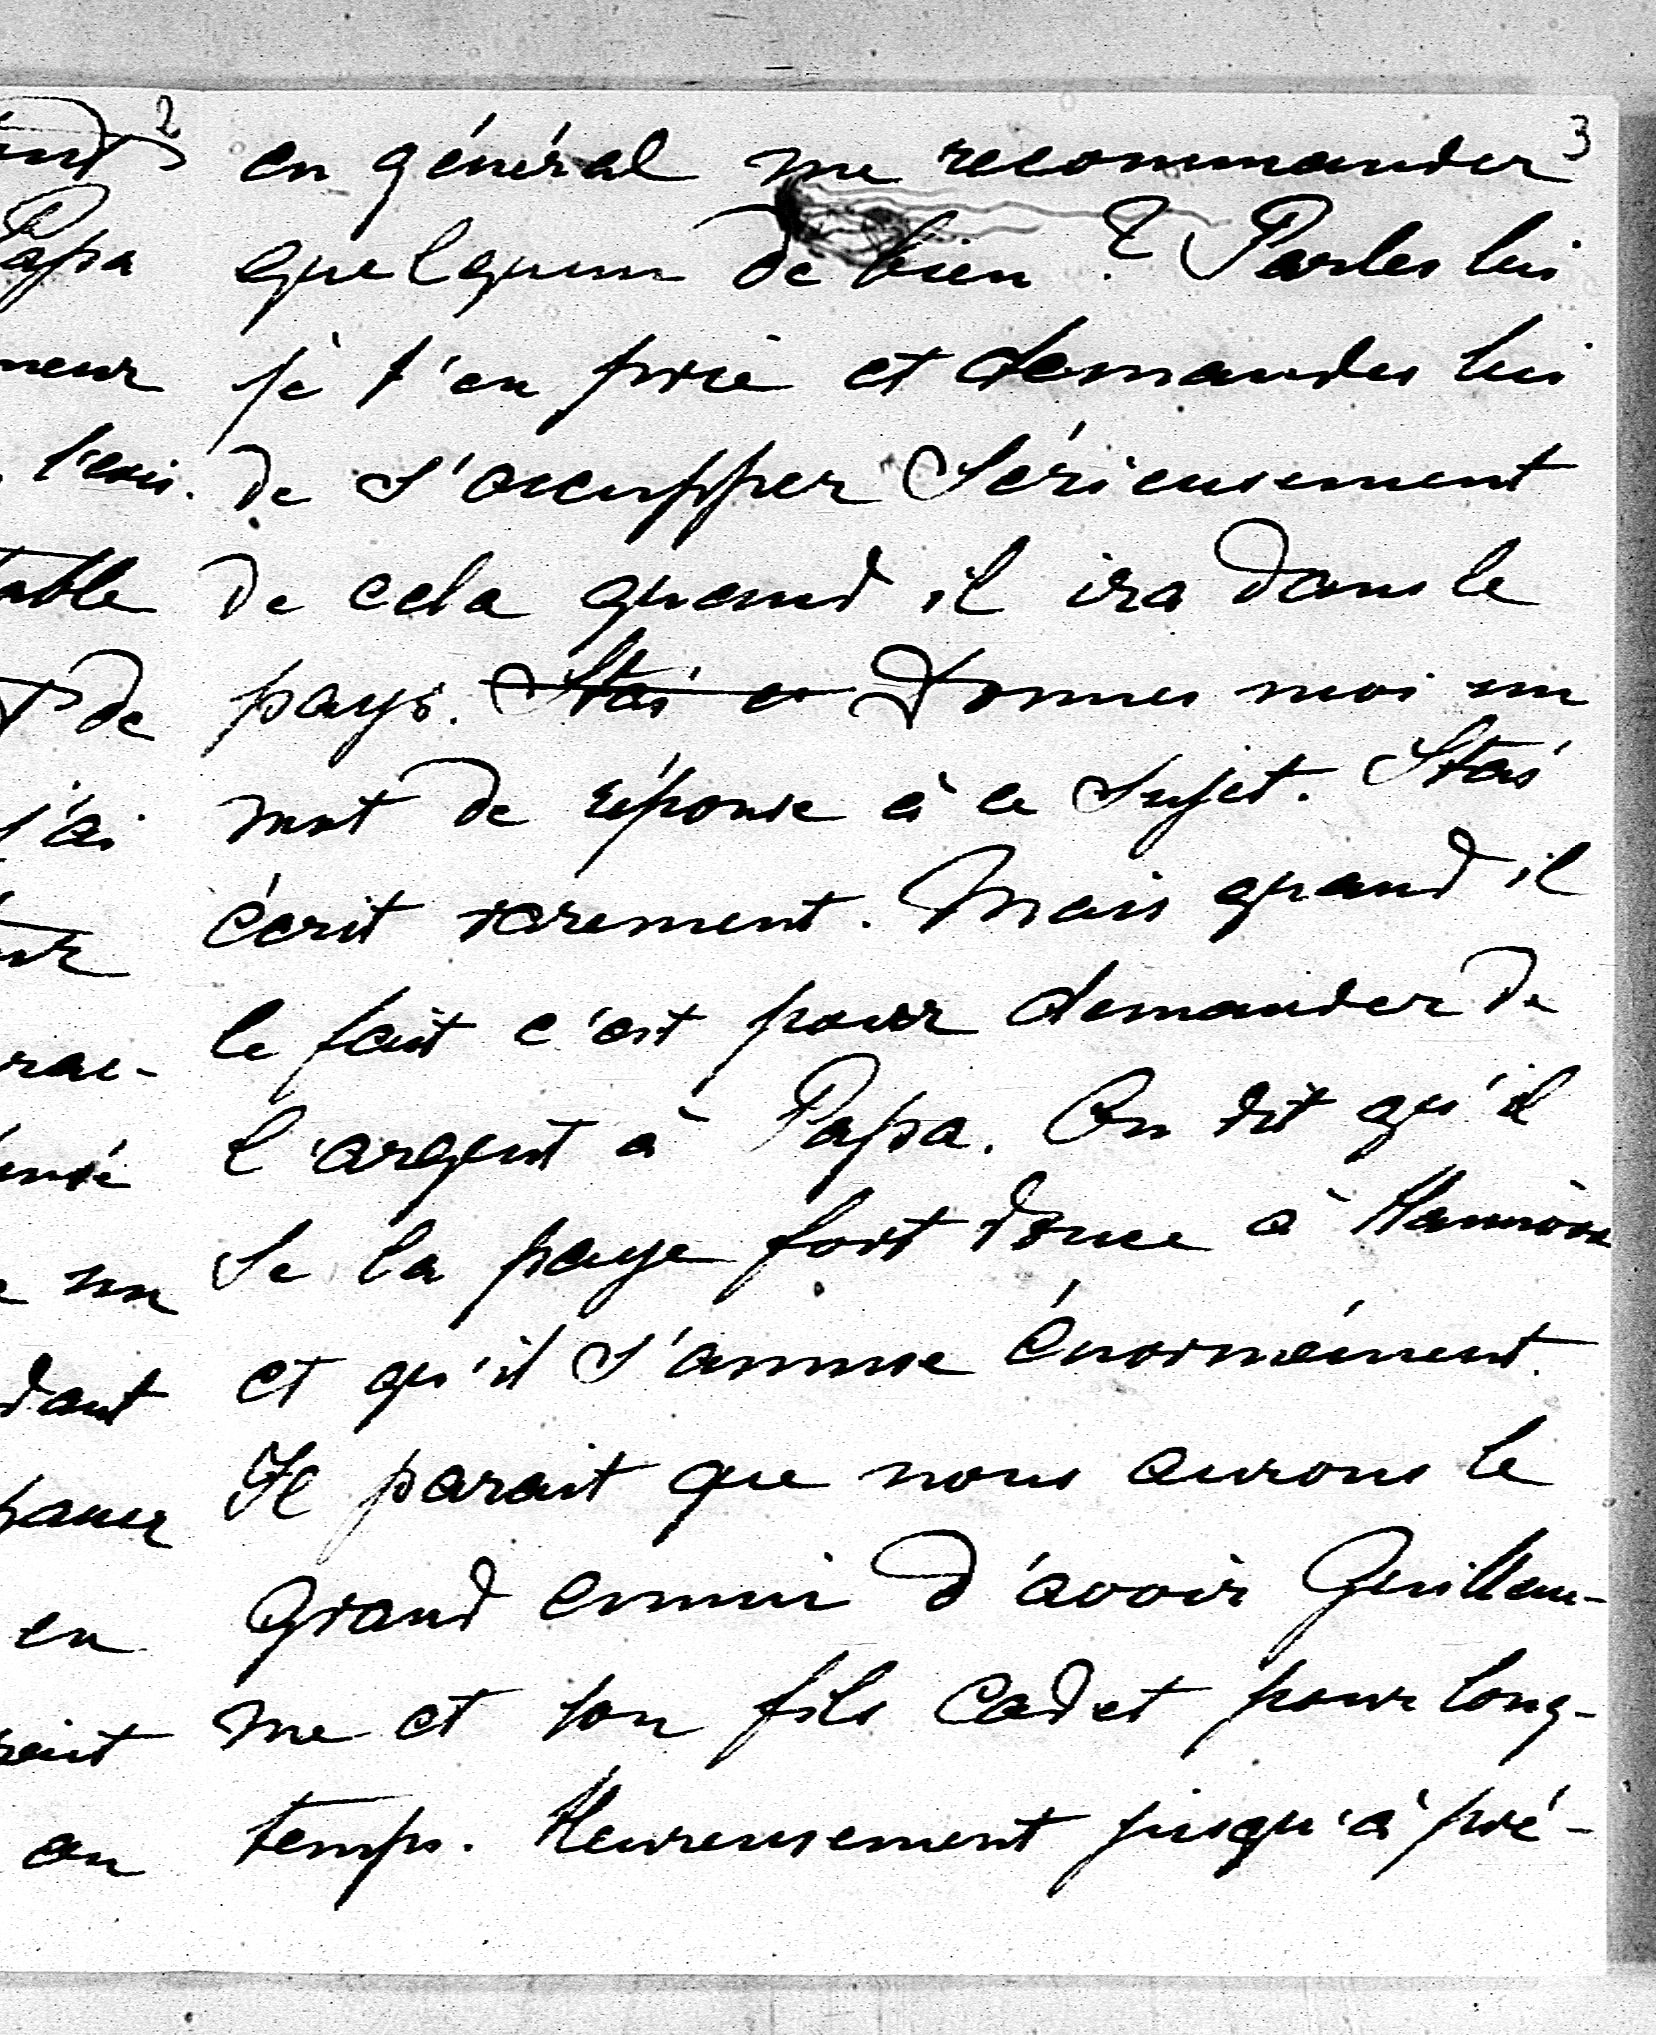 2
Papa
neur
l'env.
table
de
j'ai
rac-
un
dant
en
on
3
en général me recommander
quelquun de bien ? Parles lui
je t'en prie et demandes lui
de s'occupper sérieusement
de cela quand il ira dans le
pays. Stas e Donnes moi un
mot de réponse à ce sujet. Stas
écrit rarement. Mais quand il
le fait c'est pour demander de
l'argent à Papa. On dit qu'il
se la paye fort douce à Hanovre
et qu'il s'amuse énormément.
Il parait que nous aurons le
grand ennui d'avoir Guillau-
me et son fils cadet pour long-
temps. Heureusement jusqu'à pré-